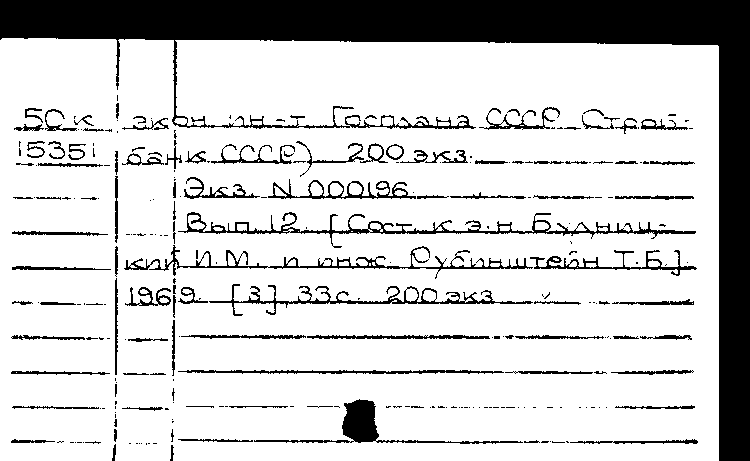 50к экон ин-т Госплана СССР Строй-
15351 банк СССР) 200 экз.
Экз. N 000196
Вып. 12. [Сост. к э.н Будниц-
кий И.М. и инж. Рубинштейн Т.Б.]
1969. [3], 33с. 200 экз